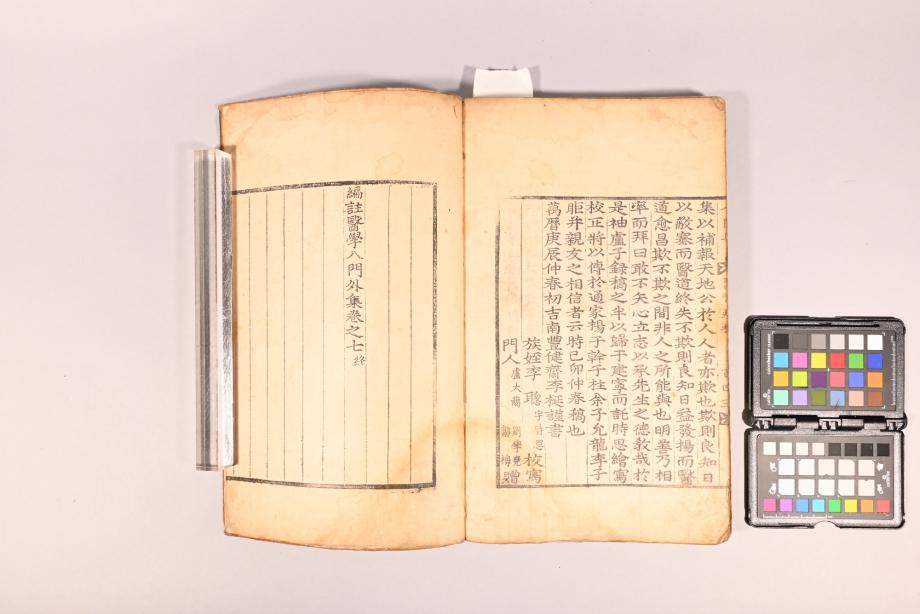 集以補報天地公於人人者亦欺也欺則良知日
以蔽塞而醫道終失不欺則良知日益發揚而醫
道愈昌欺不欺之間非人之所能與也明善乃相
率而拜曰敢不矢心立志以承先生之德教哉於
是袖盧子錄稿之年以歸于建寧而託時思繪寫
校正將以傳於通家楊子幹子柱余子允龍李子
眶幷親友之相信者云時己卯仲春稿也
萬曆庚辰仲春初吉南豐健齋李梴謹書
族姪李聰 校寫
門人 贈
編註醫學入門外集卷之七終